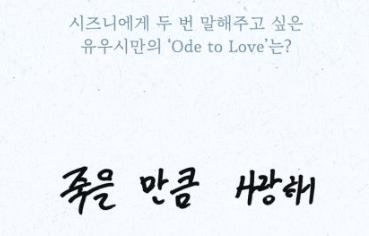 시즈니에게 두 번 말해주고 싶은
유우시만의 'Ode to Love'는?
죽을 만큼 사랑해